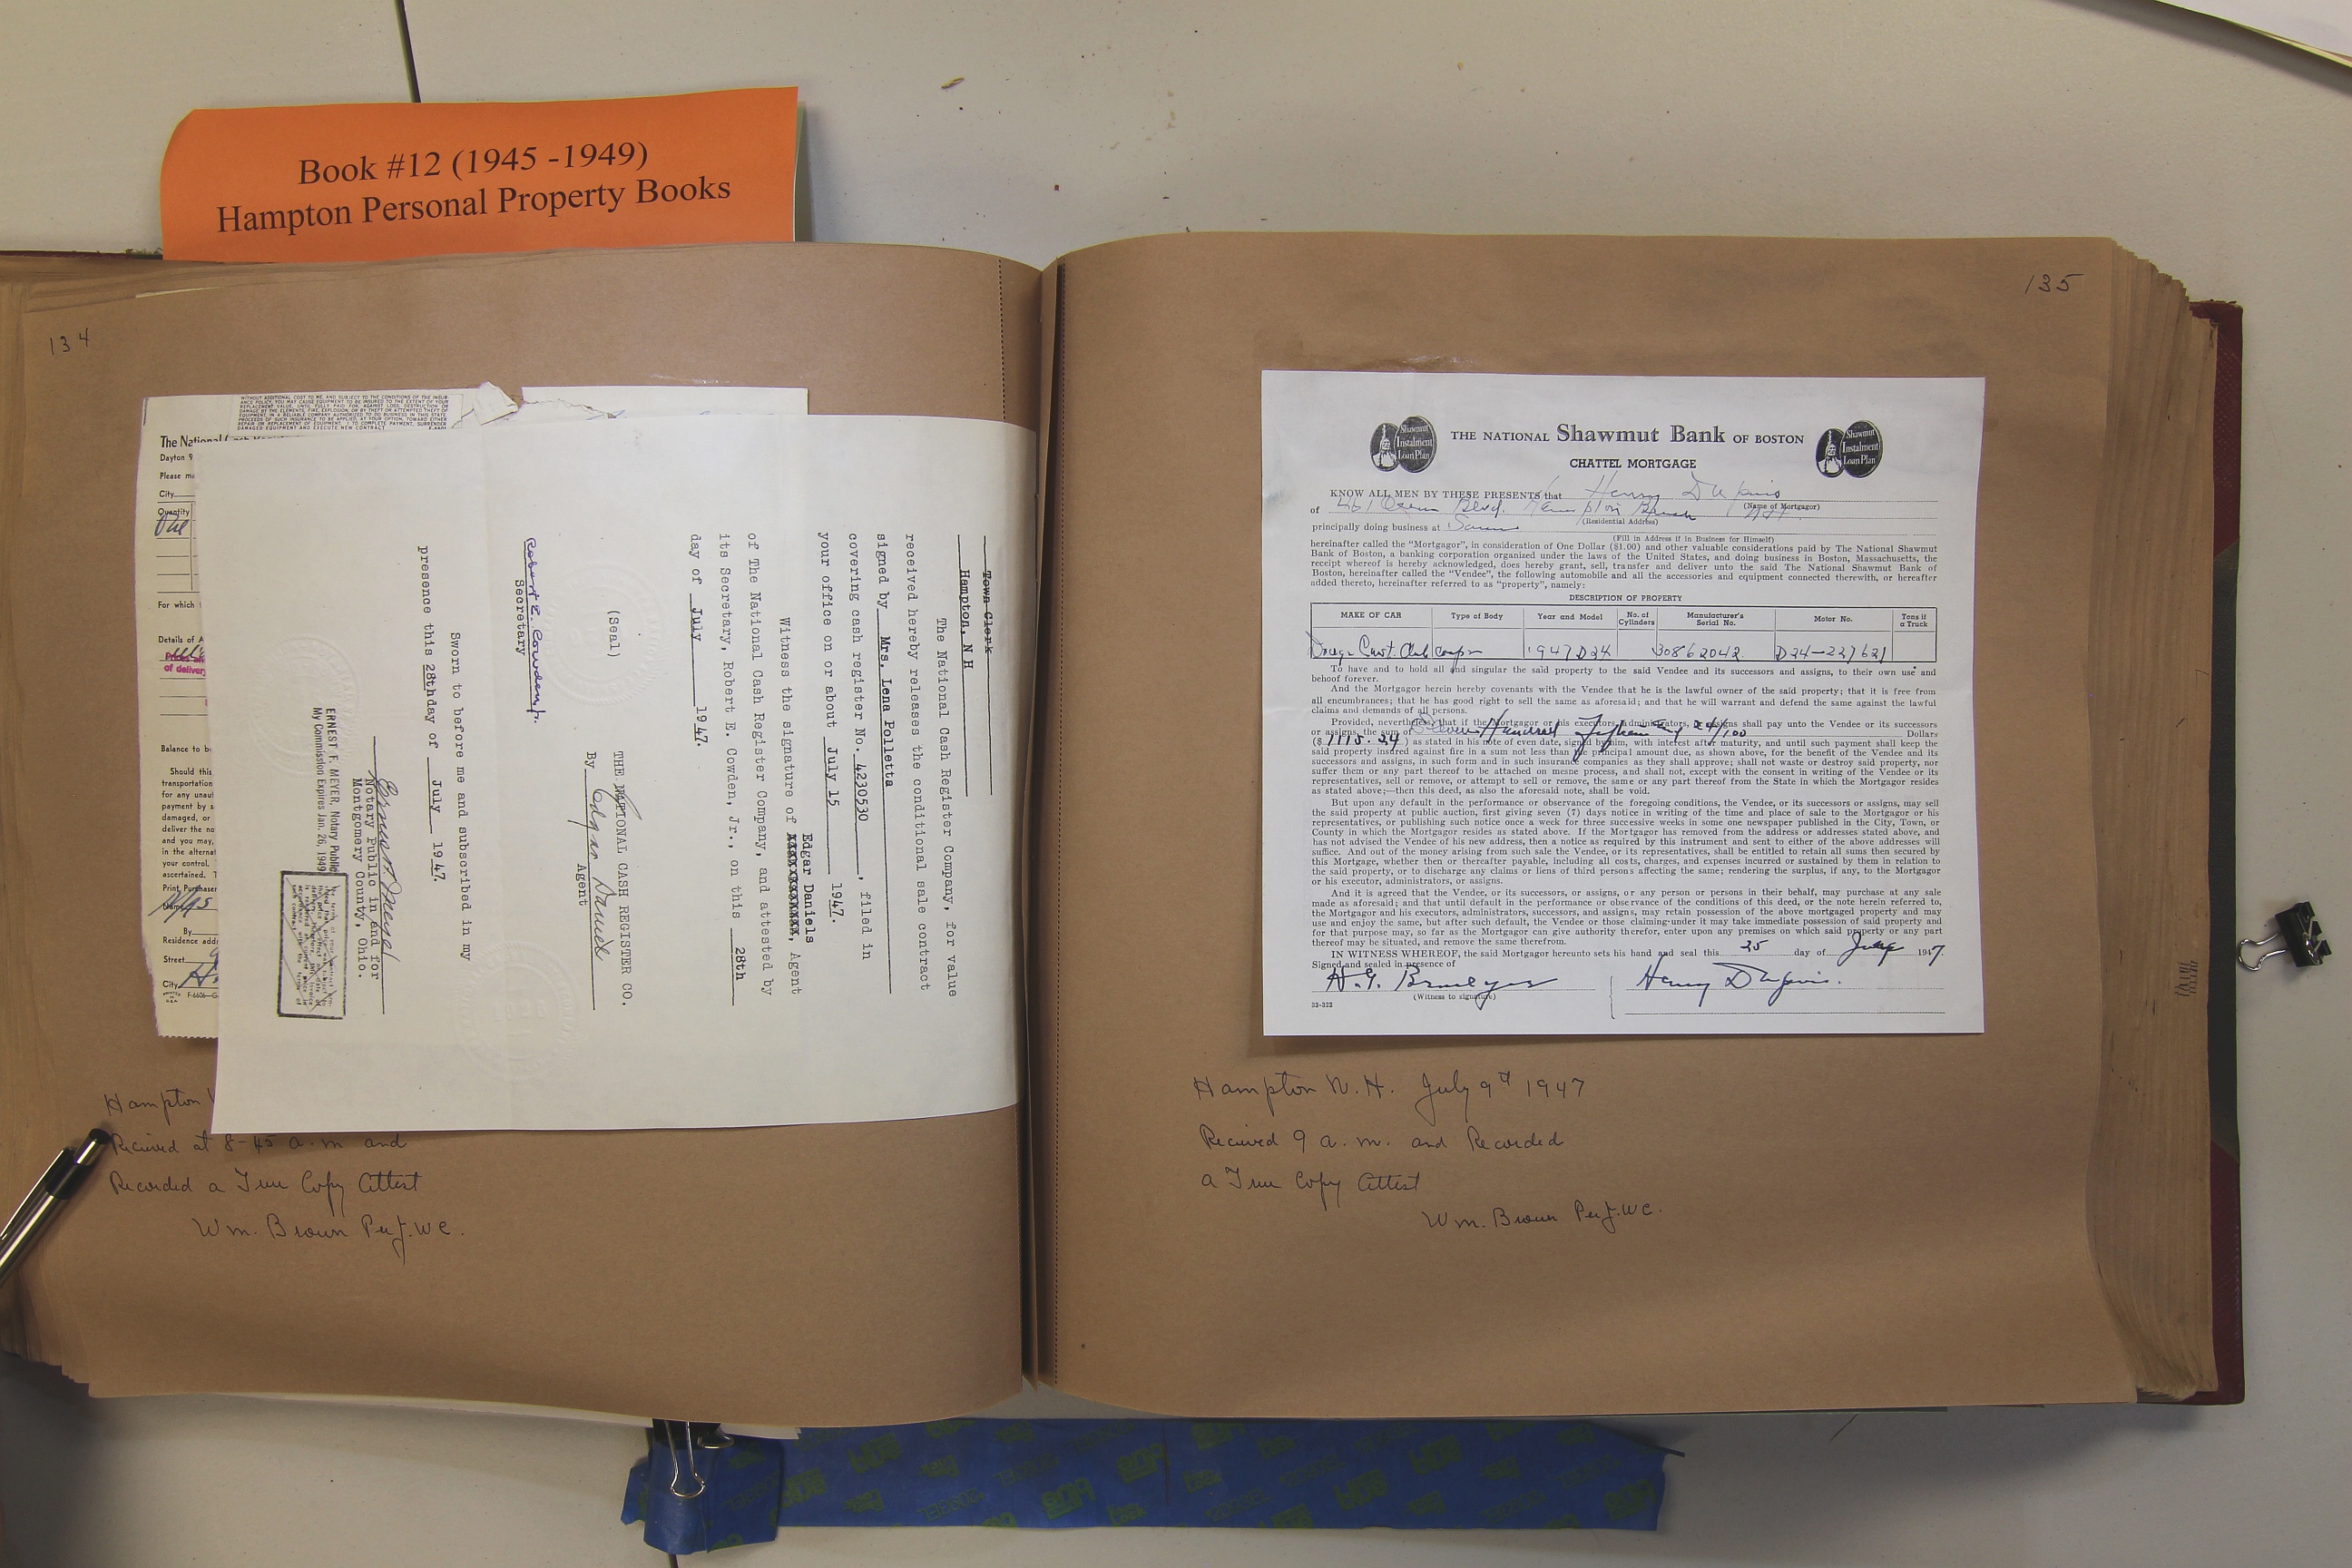 Book #12 (1945 -1949)
Hampton Personal Property Books
134
WITHOUT ADDITIONAL COST TO ME, AND SUBJECT TO THE CONDITIONS OF THE INSUR-
ANCE POLICY, YOU MAY CAUSE EQUIPMENT TO BE INSURED TO THE EXTENT OF YOUR
REPLACEMENT VALUE, UNTIL FULLY PAID FOR, AGAINST LOSS, DESTRUCTION OR
DAMAGE BY THE ELEMENTS, FIRE, EXPLOSION, OR BY THEFT OR ATTEMPTED THEFT OF
EQUIPMENT IN A RELIABLE COMPANY AUTHORIZED TO DO BUSINESS IN THIS STATE.
PROCEEDS OF SUCH INSURANCE TO BE APPLIED, AT YOUR OPTION, TOWARD EITHER
REPAIR OR REPLACEMENT OF EQUIPMENT. TO COMPLETE PAYMENT, SURRENDER
DAMAGED EQUIPMENT AND EXECUTE NEW CONTRACT
The National
Dayton 9
Please
City
Quantity
One
For which
Details of
of delivery
Balance to
Should this
transportation
for any
payment by
damaged, or
deliver the
and you may,
in the
your control.
ascertained.
Print Purchaser
Name
By
Residence
Street
City
Town Clerk
Hampton, N H
The National Cash Register Company, for value
received hereby releases the conditional sale contract
signed by Mrs. Lena Polletta
covering cash register No. 4230530, filed in
your office on or about July 15 1947.
Witness the signature of Edgar Daniels, Agent
of The National Cash Register Company, and attested by
its Secretary, Robert E. Cowden, Jr., on this 28th
day of July 1947.
THE NATIONAL CASH REGISTER CO.
(Seal)
By Edgar Daniels
Agent
Robert E. Cowden Jr.
Secretary
Sworn to before me and subscribed in my
presence this 28thday of July 1947.
Notary Public in and for
Montgomery County, Ohio.
ERNEST F. MEYER, Notary Public
My Commission Expires Jan. 26, 1949
Hampton
Recieved at 8-45 a.m and
Recorded a True Copy Attest
Wm. Brown Per J.W.C.
135
Shawmut Instalment Loan Plan
THE NATIONAL Shawmut Bank OF BOSTON
Shawmut Instalment Loan Plan
CHATTEL MORTGAGE
KNOW ALL MEN BY THESE PRESENTS that Henry
(Name of Mortgagor)
of 461 Ocean Blvd. Hampton Beach N.H.
(Residential Address)
principally doing business at Same
(Fill in Address if in Business for Himself)
hereinafter called the "Mortgagor", in consideration of One Dollar ($1.00) and other valuable considerations paid by The National Shawmut
Bank of Boston, a banking corporation organized under the laws of the United States, and doing business in Boston, Massachusetts, the
receipt whereof is hereby acknowledged, does hereby grant, sell, transfer and deliver unto the said The National Shawmut Bank of
Boston, hereinafter called the "Vendee", the following automobile and all the accessories and equipment connected therewith, or hereafter
added thereto, hereinafter referred to as "property", namely:
DESCRIPTION OF PROPERTY
MAKE OF CAR Type of Body Year and Model No. of Cylinders Manufacturer's Serial No. Motor No. Tons if a Truck
Dodge Cust. Club coupe 1947 D24 30862042 D24-227621
To have and to hold all and singular the said property to the said Vendee and its successors and assigns, to their own use and
behoof forever.
And the Mortgagor herein hereby covenants with the Vendee that he is the lawful owner of the said property; that it is free from
all encumbrances; that he has good right to sell the same as aforesaid; and that he will warrant and defend the same against the lawful
claims and demands of all persons.
Provided, nevertheless, that if the Mortgagor or his executors, administrators, or assigns shall pay unto the Vendee or its successors
or assigns, the sum of Eleven Hundred Fifteen and 24/100 Dollars
($1115.24) as stated in his note of even date, signed by him, with interest after maturity, and until such payment shall keep the
said property insured against fire in a sum not less than the principal amount due, as shown above, for the benefit of the Vendee and its
successors and assigns, in such form and in such insurance companies as they shall approve; shall not waste or destroy said property, nor
suffer them or any part thereof to be attached on mesne process, and shall not, except with the consent in writing of the Vendee or its
representatives, sell or remove, or attempt to sell or remove, the same or any part thereof from the State in which the Mortgagor resides
as stated above;—then this deed, as also the aforesaid note, shall be void.
But upon any default in the performance or observance of the foregoing conditions, the Vendee, or its successors or assigns, may sell
the said property at public auction, first giving seven (7) days notice in writing of the time and place of sale to the Mortgagor or his
representatives, or publishing such notice once a week for three successive weeks in some one newspaper published in the City, Town, or
County in which the Mortgagor resides as stated above. If the Mortgagor has removed from the address or addresses stated above, and
has not advised the Vendee of his new address, then a notice as required by this instrument and sent to either of the above addresses will
suffice. And out of the money arising from such sale the Vendee, or its representatives, shall be entitled to retain all sums then secured by
this Mortgage, whether then or thereafter payable, including all costs, charges, and expenses incurred or sustained by them in relation to
the said property, or to discharge any claims or liens of third persons affecting the same; rendering the surplus, if any, to the Mortgagor
or his executor, administrators, or assigns.
And it is agreed that the Vendee, or its successors, or assigns, or any person or persons in their behalf, may purchase at any sale
made as aforesaid; and that until default in the performance or observance of the conditions of this deed, or the note herein referred to,
the Mortgagor and his executors, administrators, successors, and assigns, may retain possession of the above mortgaged property and may
use and enjoy the same, but after such default, the Vendee or those claiming under it may take immediate possession of said property and
for that purpose may, so far as the Mortgagor can give authority therefor, enter upon any premises on which said property or any part
thereof may be situated, and remove the same therefrom.
IN WITNESS WHEREOF, the said Mortgagor hereunto sets his hand and seal this 25 day of 1947.
Signed and sealed in presence of
(Witness to signature)
33-322
Hampton N. H. July 9th 1947
Recieved 9 a. m. and Recorded
a True Copy Attest
Wm. Brown Per J.W.C.